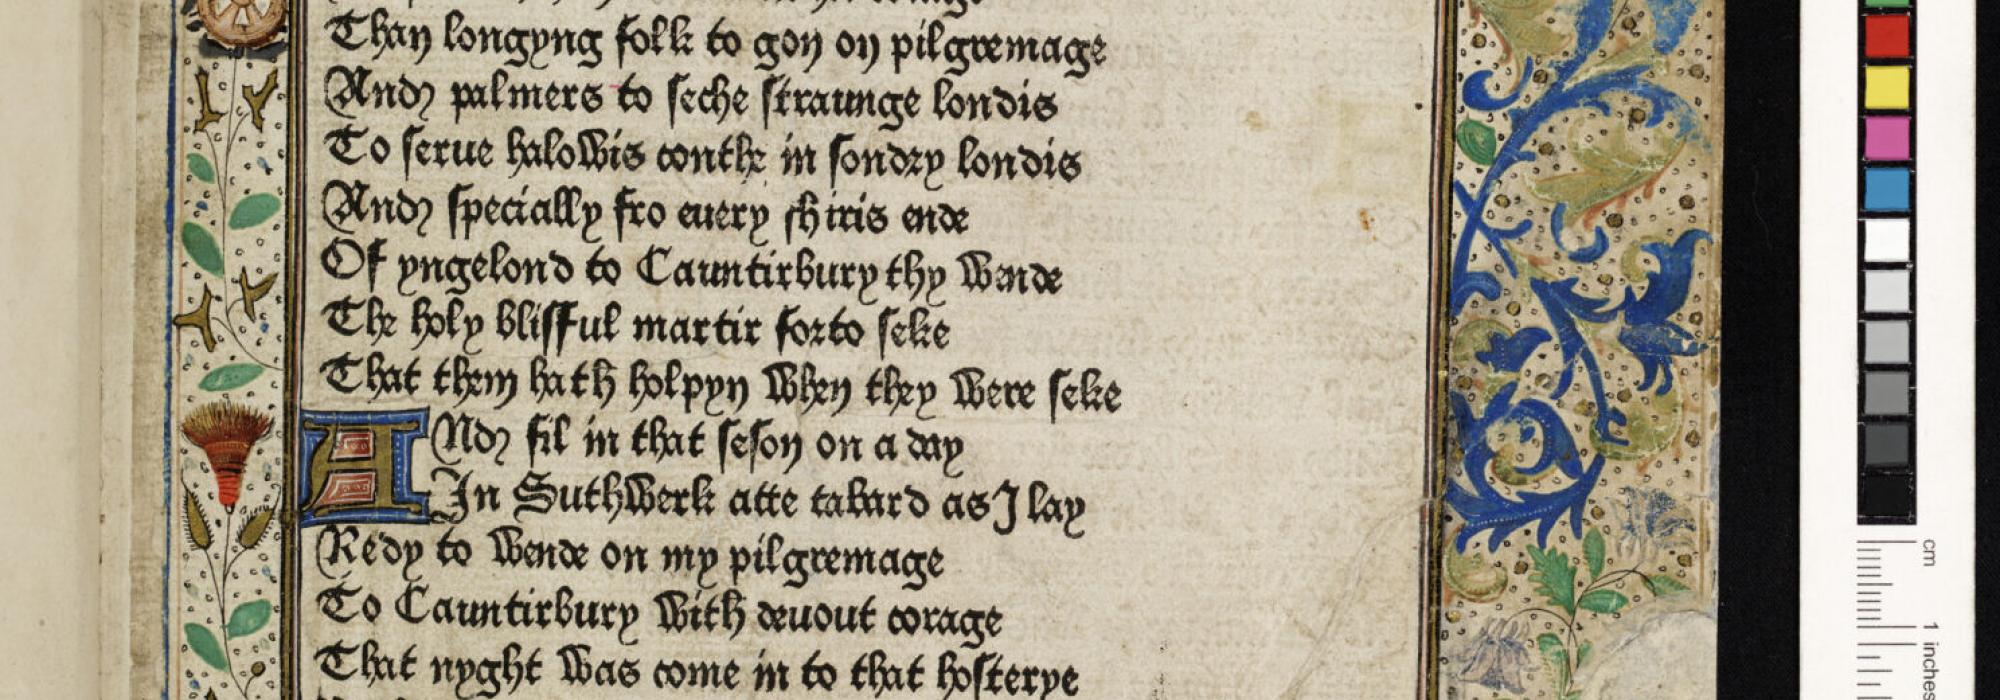 Than longyng folk to gon on pilgremage
And palmers to seche straunge londis
To serue halowis conthe in sondry londis
And specially fro euery shiris ende
Of yngelond to Cauntirbury thy wende
The holy blisful martir forto seke
That them hath holpyn when they were seke
And fil in that seson on a day
In Suthwerk atte tabard as I lay
Redy to wende on my pilgremage
To Cauntirbury with deuout corage
That nyght was come in to that hosterye
cm
1 inches